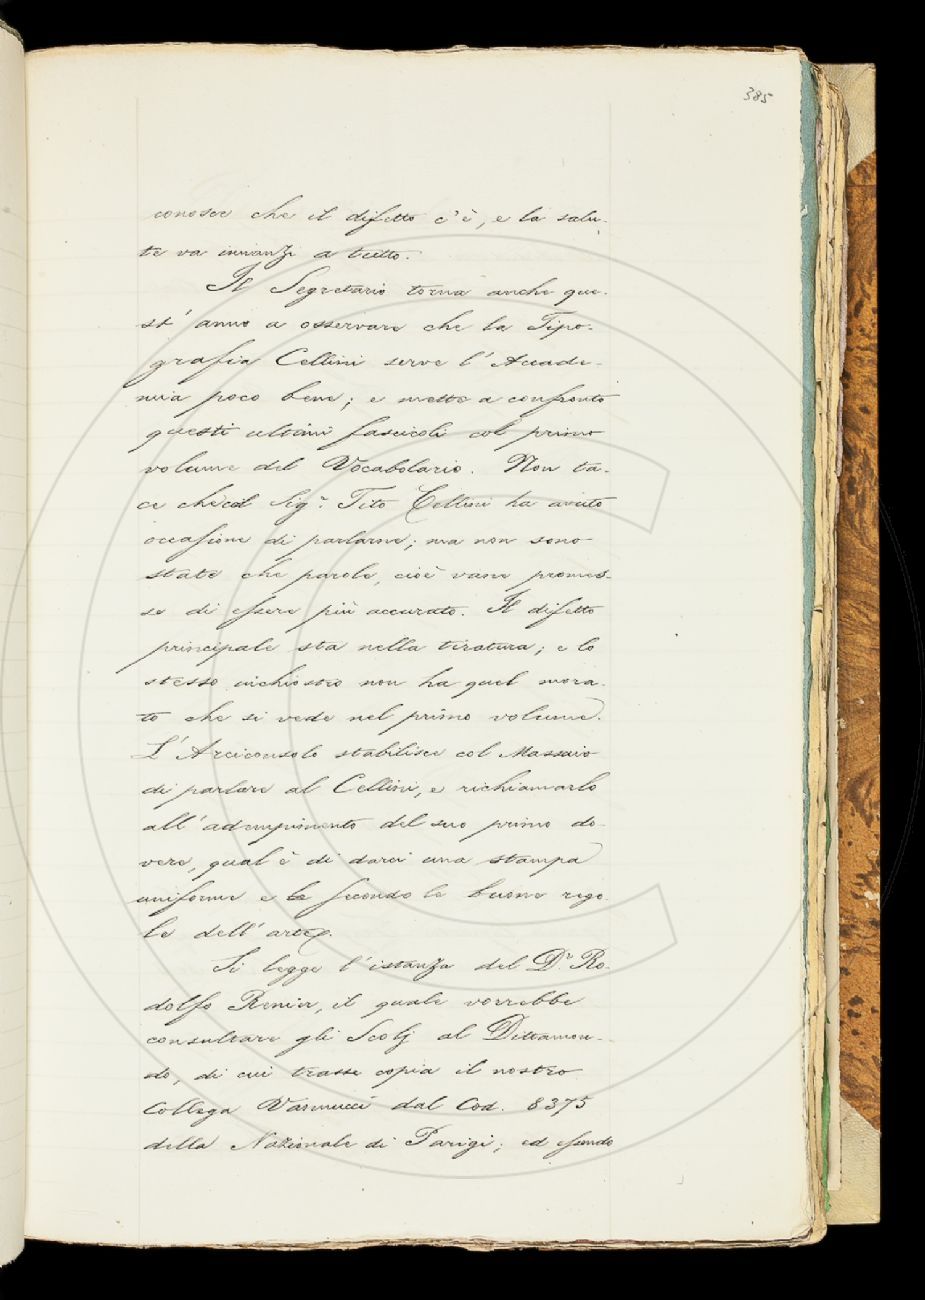 385
conosce che il difetto c'è, e la salu-
te va innanzi a tutto.
Il Segretario torna anche que-
st' anno a osservare che la Tipo-
grafia Cellini serve l' Accade-
mia poco bene; e mette a confronto
questi ultimi fascicoli col primo
volume del Vocabolario. Non ta-
ce che il Sig.r Tito Cellini ha avuto
occasione di parlarne; ma non sono
state che parole, cioè vane promes-
se di essere più accurato. Il difetto
principale sta nella tiratura; e lo
stesso inchiostro non ha quel mora-
to che si vede nel primo volume.
L' Arciconsolo stabilisce col Massaio
di parlare al Cellini, e richiamarlo
all' adempimento del suo primo do-
vere, qual è di darci una stampa
uniforme e secondo le buone rego-
le dell' arte.
Si legge l' istanza del D.r Ro-
dolfo Renier, il quale vorrebbe
consultare gli Scolj al Dittamon-
do, di cui trasse copia il nostro
Collega Vannucci dal Cod. 8375
della Nazionale di Parigi; ed essendo